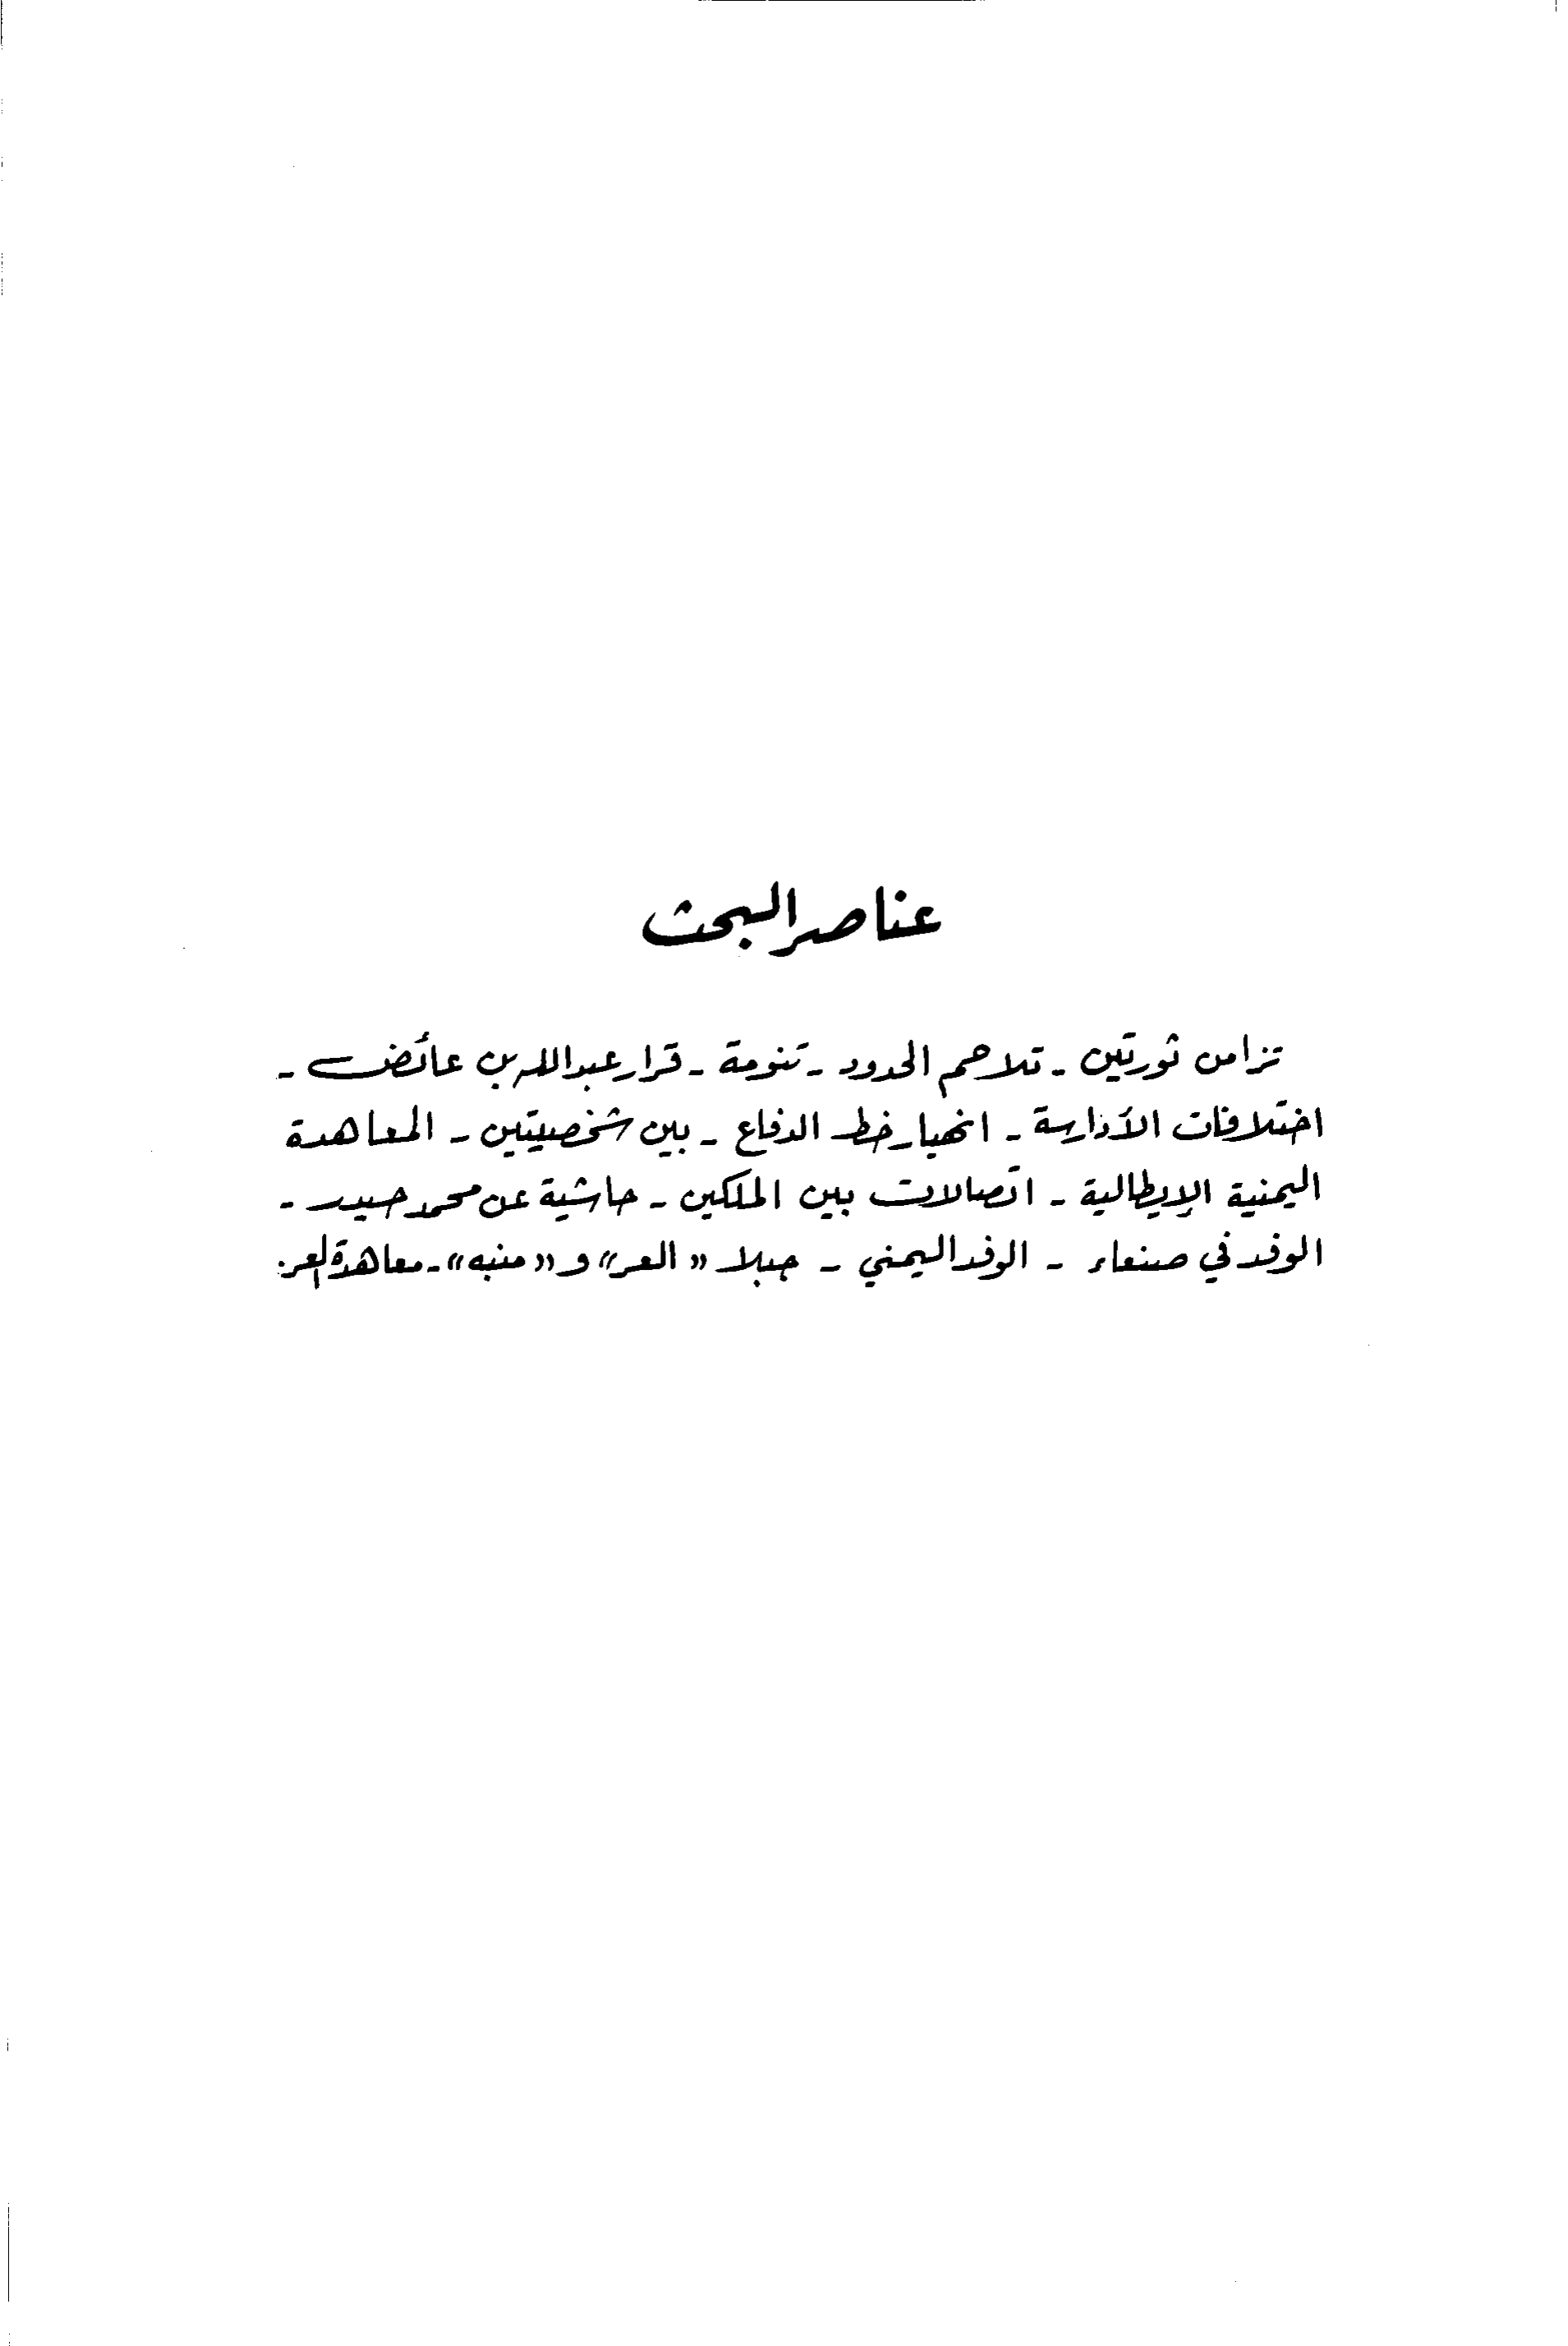 عناصر البحث
تزامن ثورتين - تلاحم الحدود - تنومة - قرار عبدالله بن عائض -
اختلافات الأدارسة - انهيار خط الدفاع - بين شخصيتين - المعاهدة
اليمنية الإيطالية - اتصالات بين الملكين - حاشية عن محمد حيدر -
الوفد في صنعاء - الوفد اليمني - جبلا «العر» و «منبه» - معاهدة العر.